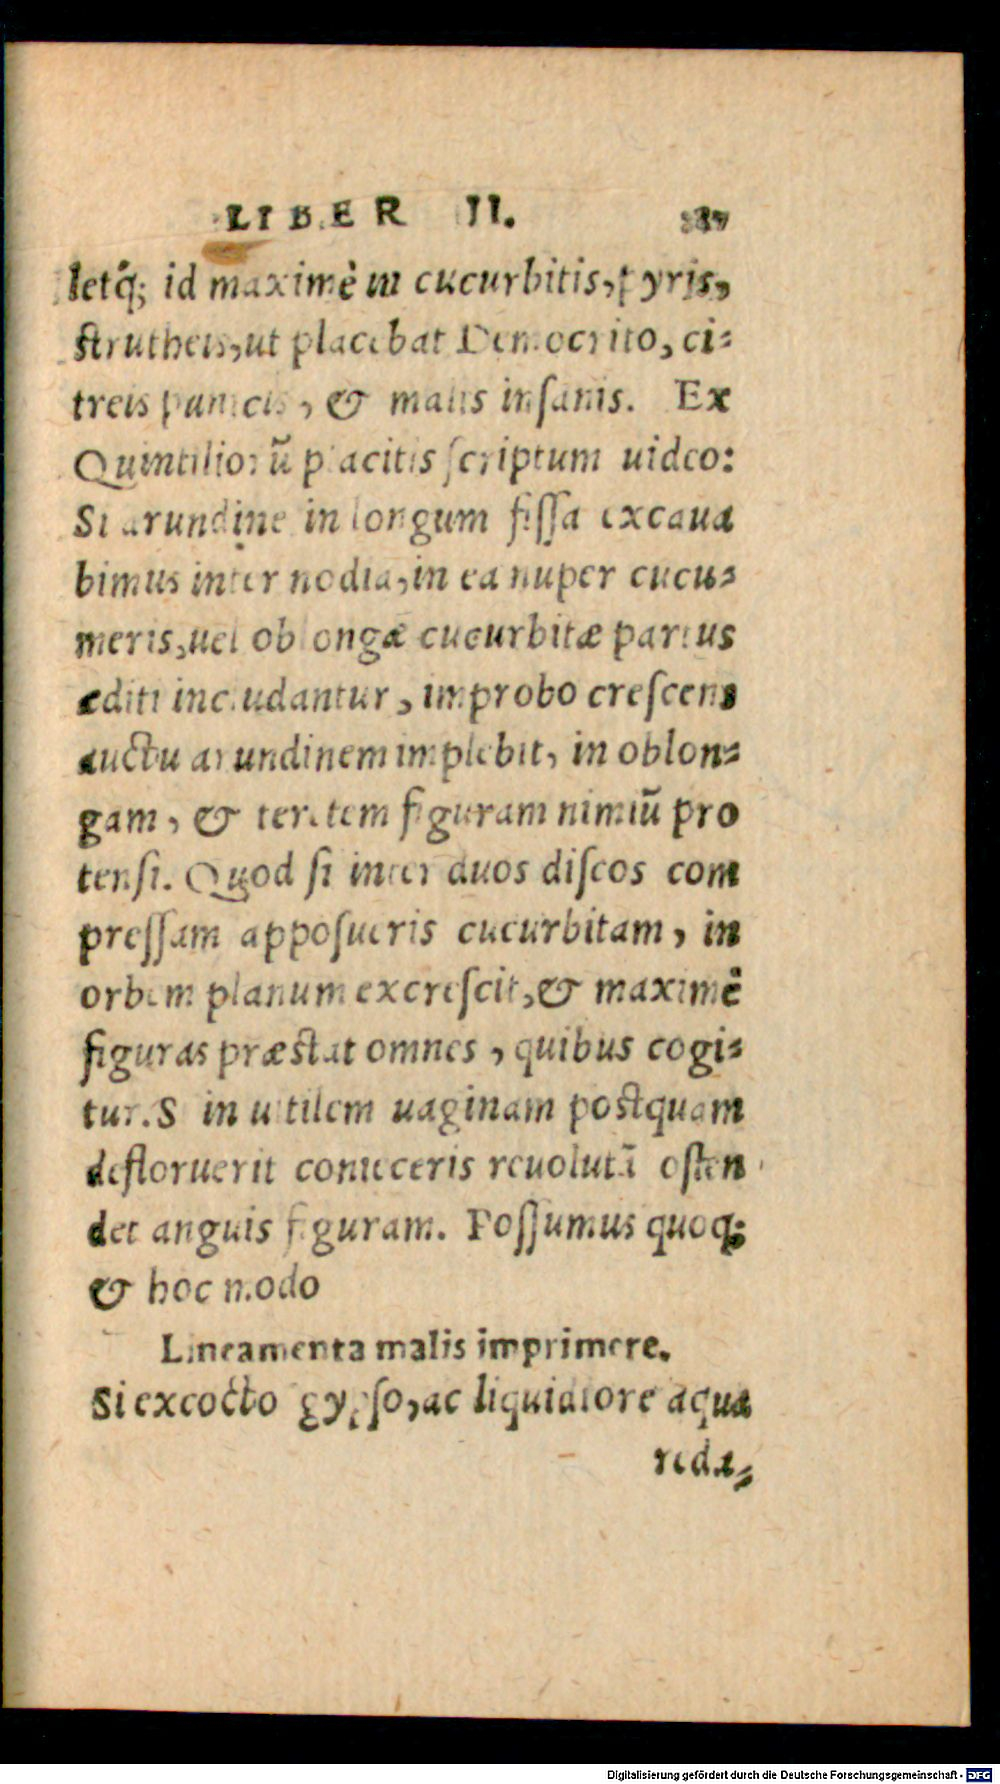 LIBER II. 187
letq́; id maximè in cucurbitis, pyris,
strutheis, ut placebat Democrito, ci-
treis punicis, & malis insanis. Ex
Quintiliorũ placitis scriptum uideo:
Si arundine in longum fissa excaua
bimus inter nodia, in ea nuper cucu-
meris, uel oblongæ cucurbitæ partus
editi includantur, improbo crescens
auctu arundinem implebit, in oblon-
gam, & teretem figuram nimiũ pro
tensi. Quod si inter duos discos com
pressam apposueris cucurbitam, in
orbem planum excrescit, & maximè
figuras præstat omnes, quibus cogi-
tur. Si in uitilem uaginam postquam
defloruerit conieceris reuolutã osten
det anguis figuram. Possumus quoq;
& hoc modo
Lineamenta malis imprimere.
Si excocto gypso, ac liquidiore aqua
reda-
Digitalisierung gefördert durch die Deutsche Forschungsgemeinschaft - DFG